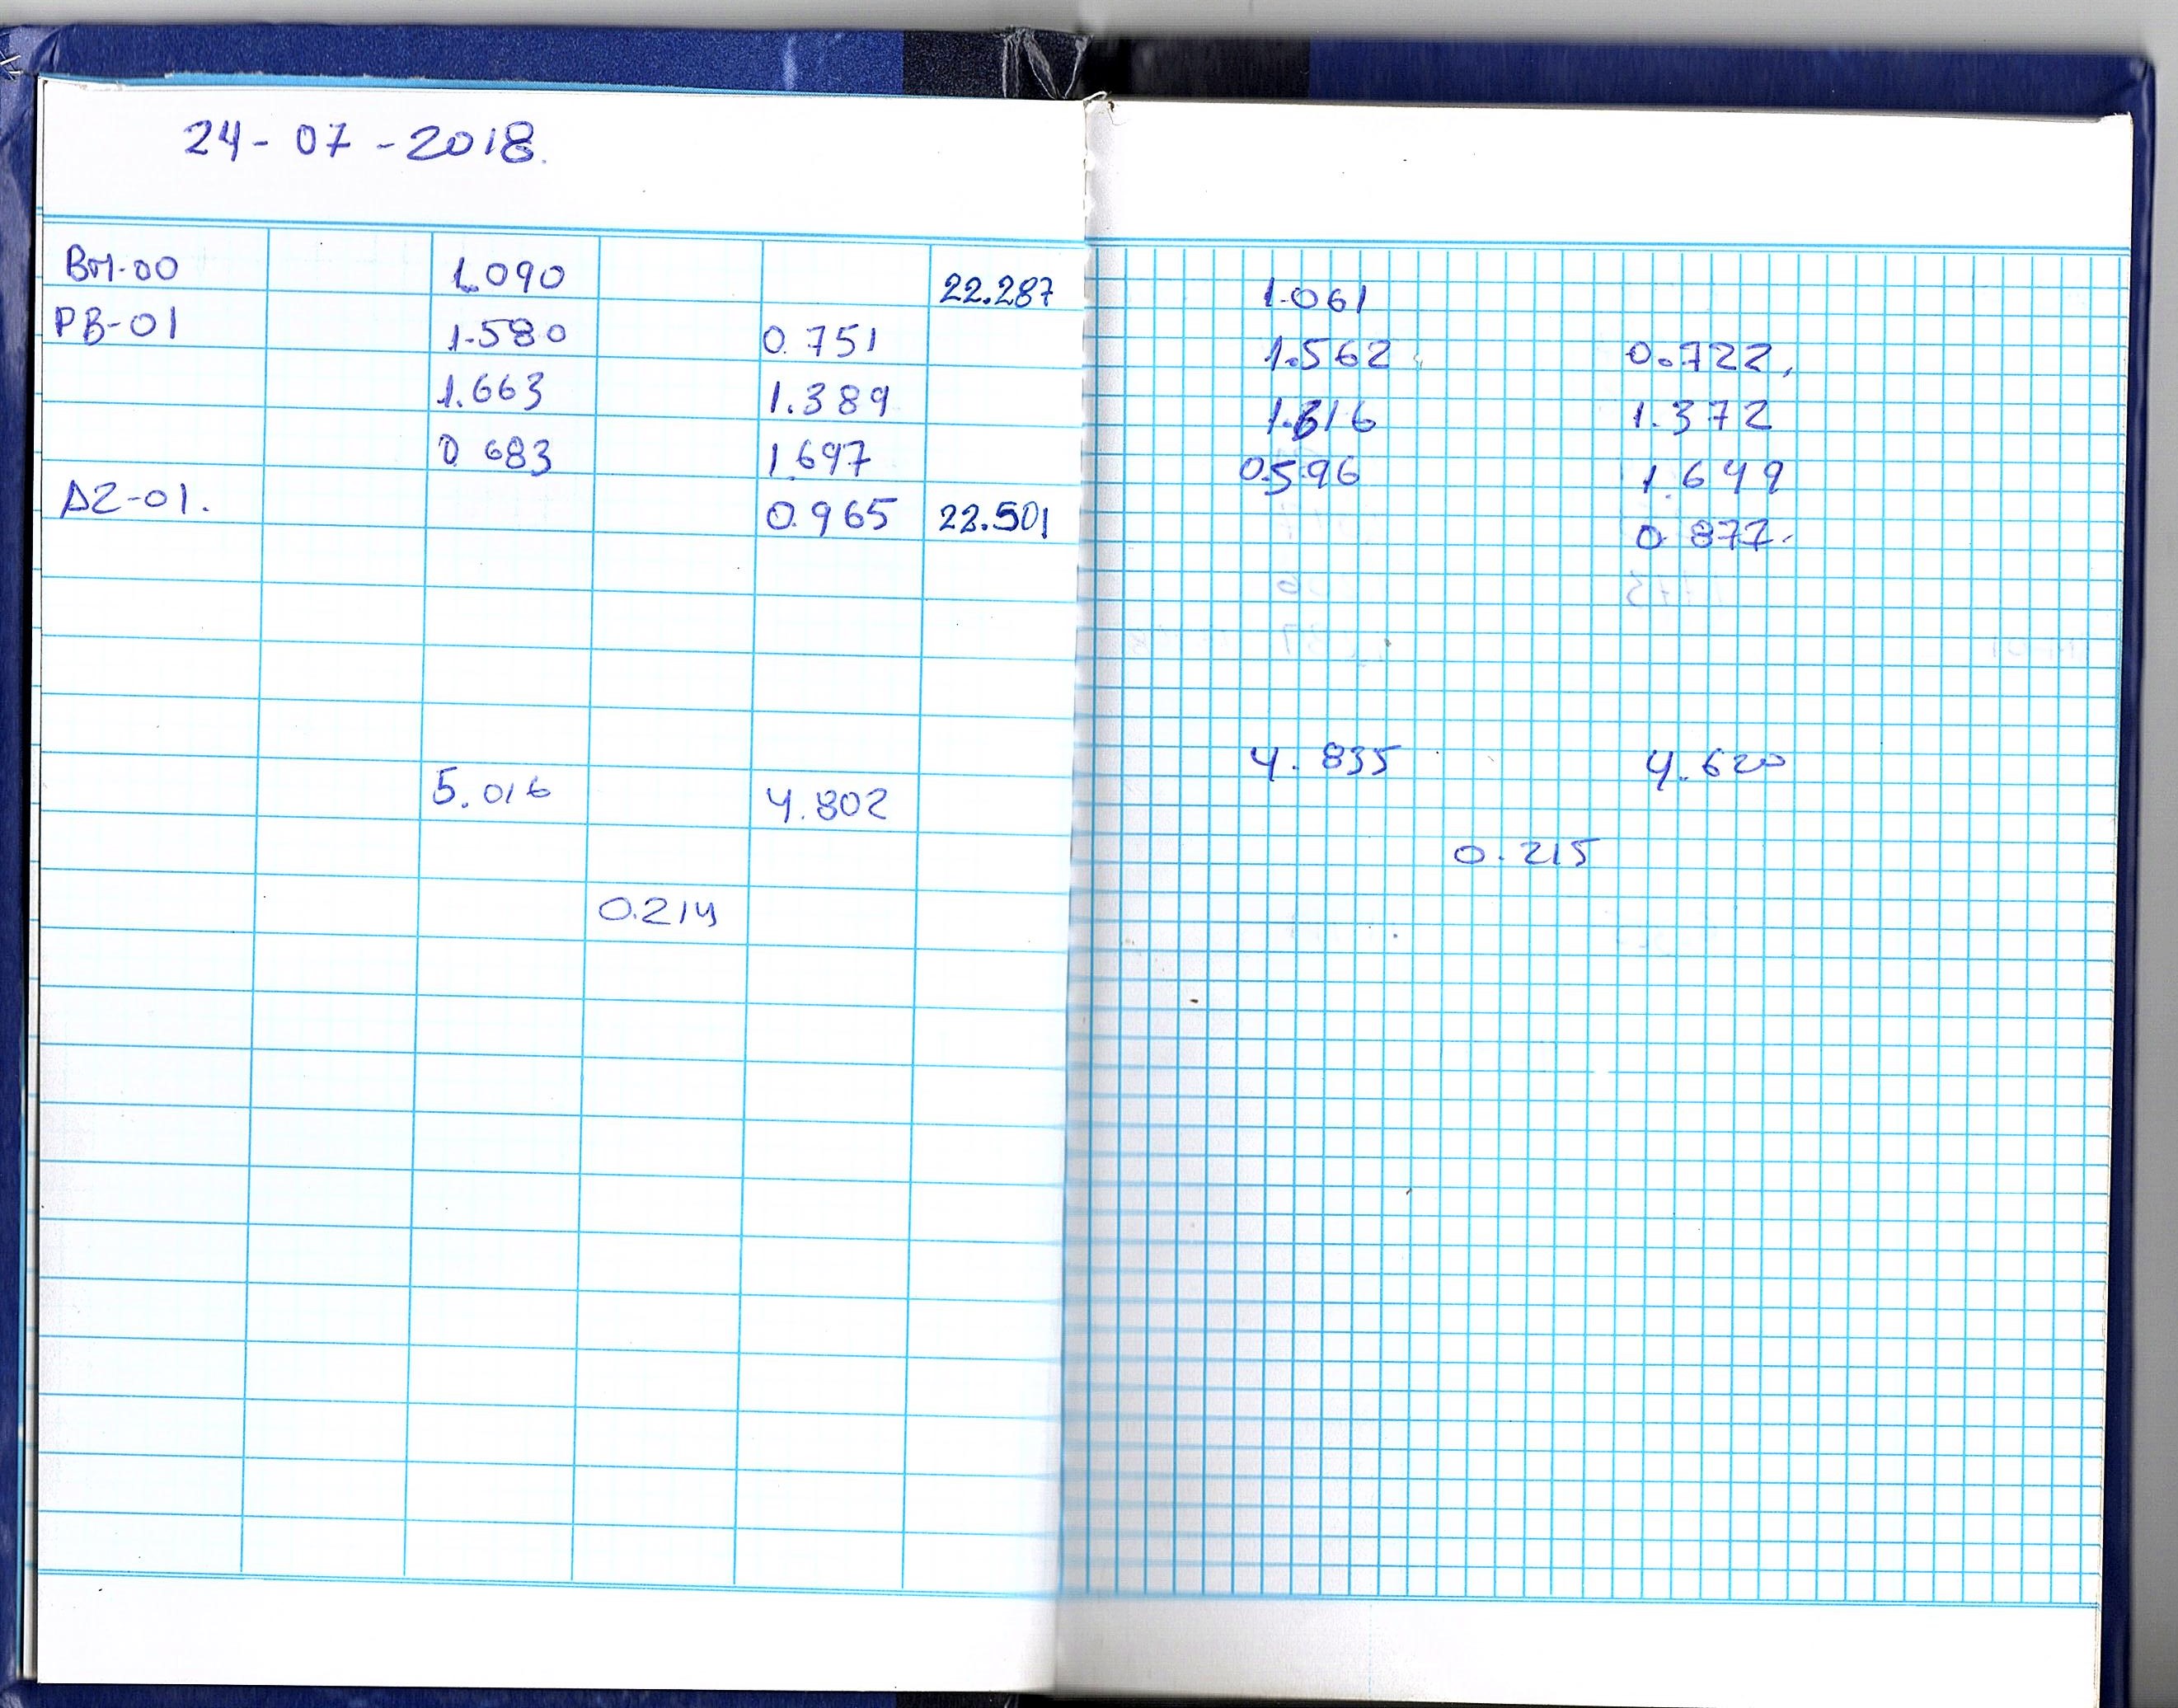 24-07-2018.
BM-00 1.090 22.287
PB-01 1.580 0.751
1.663 1.389
0 683 1.697
AZ-01. 0.965 22.501
5.016 4.802
0.214
1.061
1.562 0.722,
1.616 1.372
0.596 1.649
0.877.
4.835 4.620
0.215